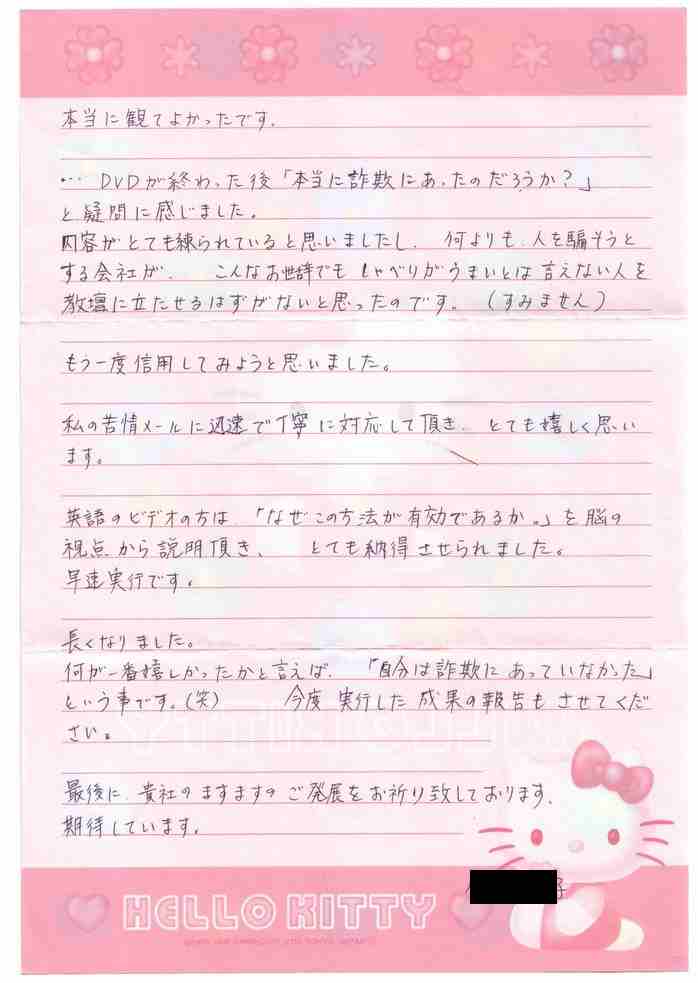 本当に観てよかったです.
… DVDが終わった後「本当に詐欺にあったのだろうか？」
と疑問に感じました。
内容がとても練られていると思いましたし. 何よりも、人を騙そうと
する会社が、 こんなお世辞でも しゃべりがうまいとは言えない人を
教壇に立たせるはずがないと思ったのです。(すみません)
もう一度信用してみようと思いました。
私の苦情メールに迅速で丁寧に対応して頂き、とても嬉しく思い
ます。
英語のビデオの方は、「なぜこの方法が有効であるか。」を脳の
視点から説明頂き、 とても納得させられました。
早速実行です。
長くなりました。
何が一番嬉しかったかと言えば、「自分は詐欺にあっていなかった」
という事です。(笑) 今度実行した成果の報告もさせてくだ
さい。
最後に、貴社のますますのご発展をお祈り致しております.
期待しています。
子
HELLO KITTY